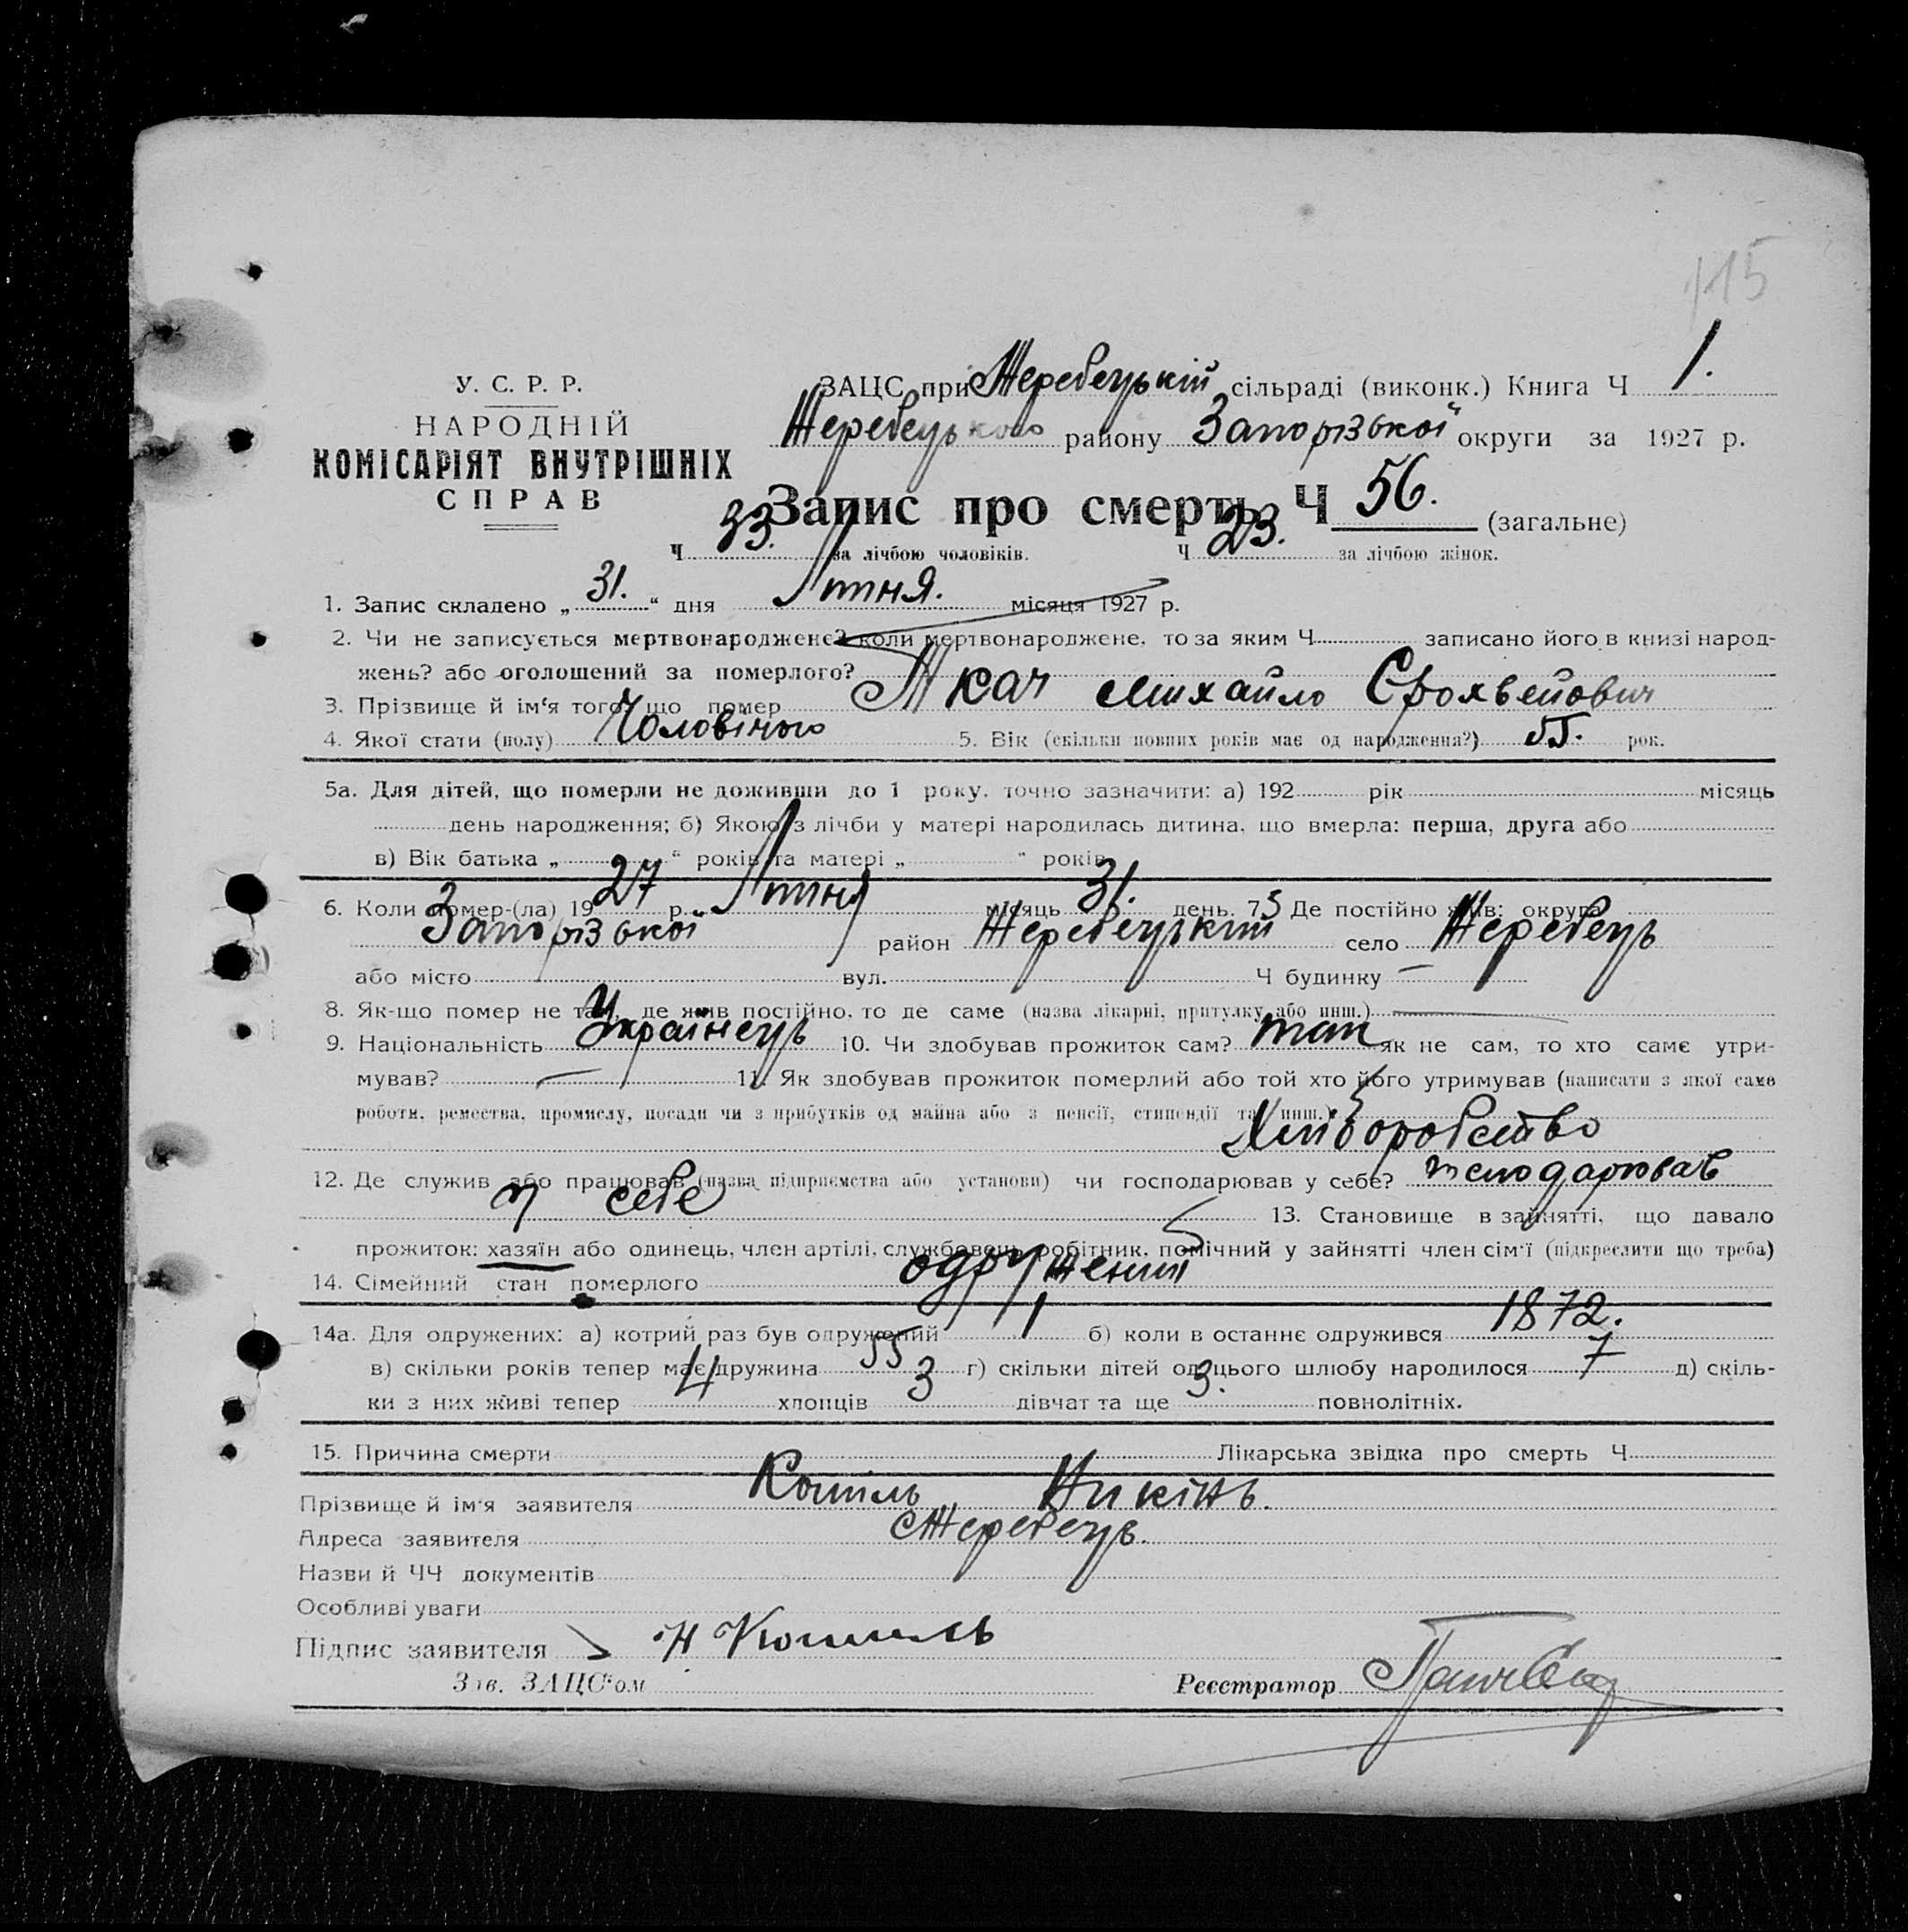 115
У. С. Р. Р.
НАРОДНІЙ
КОМІСАРІЯТ ВНУТРІШНІХ
СПРАВ
ЗАЦС при Жеребецькій сільраді (виконк.) Книга Ч 1.
Жеребецького району Запорізької округи за 1927 р.
Запис про смерть Ч 56. (загальне)
Ч 33. за лічбою чоловіків. Ч 23. за лічбою жінок.
1. Запис складено „ 31. “ дня Липня. місяця 1927 р.
2. Чи не записується мертвонароджене? коли мертвонароджене, то за яким Ч записано його в книзі народ-
жень? або оголошений за померлого?
3. Прізвище й ім'я того, що помер Ткач Михайло Єрохвейович
4. Якої стати (полу) Чоловічого 5. Вік (скільки повних років має од народження?) 55. рок.
5а. Для дітей, що померли не доживши до 1 року, точно зазначити: а) 192 рік місяць
день народження; б) Якою з лічби у матері народилась дитина, що вмерла: перша, друга або
в) Вік батька „ “ років та матері „ “ років
6. Коли помер-(ла) 1927 р. Липня місяць 31. день. 7. Де постійно жив: округа
Запорізької район Жеребецький село Жеребець
або місто вул. Ч будинку —
8. Як-що помер не там, де жив постійно, то де саме (назва лікарні, притулку або инш.) —
9. Національність Українець 10. Чи здобував прожиток сам? так як не сам, то хто саме утри-
мував? — 11. Як здобував прожиток померлий або той хто його утримував (написати з якої саме
роботи, ремества, промислу, посади чи з прибутків од майна або з пенсії, стипендії та инш.)
Хліборобство
12. Де служив або працював (назва підприємства або установи) чи господарював у себе?
у себе 13. Становище в зайнятті, що давало
прожиток: хазяїн або одинець, член артілі, службовець, робітник, помічний у зайнятті член сім'ї (підкреслити що треба)
14. Сімейний стан померлого одружений
14а. Для одружених: а) котрий раз був одружений 1 б) коли в останнє одружився 1872.
в) скільки років тепер має дружина 55 г) скільки дітей од цього шлюбу народилося 7 д) скіль-
ки з них живі тепер 4 хлопців 3 дівчат та ще 3. повнолітніх.
15. Причина смерти Лікарська звідка про смерть Ч
Прізвище й ім'я заявителя
Адреса заявителя Жеребець.
Назви й ЧЧ документів
Особливі уваги
Підпис заявителя
Зав. ЗАЦС'ом Реєстратор